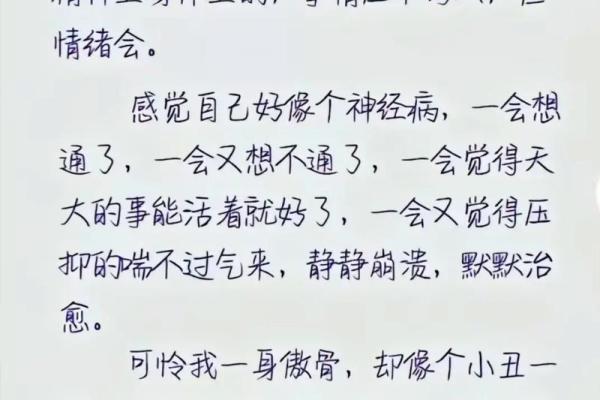 情绪会。
感觉自己好像个神经病，一会想
通了，一会又想不通了，一会觉得天
大的事能活着就好了，一会又觉得压
抑的喘不过气来，静静崩溃，默默治
愈。
可怜我一身傲骨，却像个小丑一